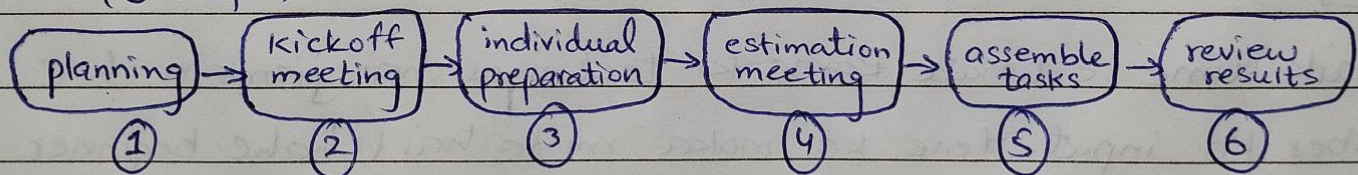 planning → kickoff meeting → individual preparation → estimation meeting → assemble tasks → review results
① ② ③ ④ ⑤ ⑥